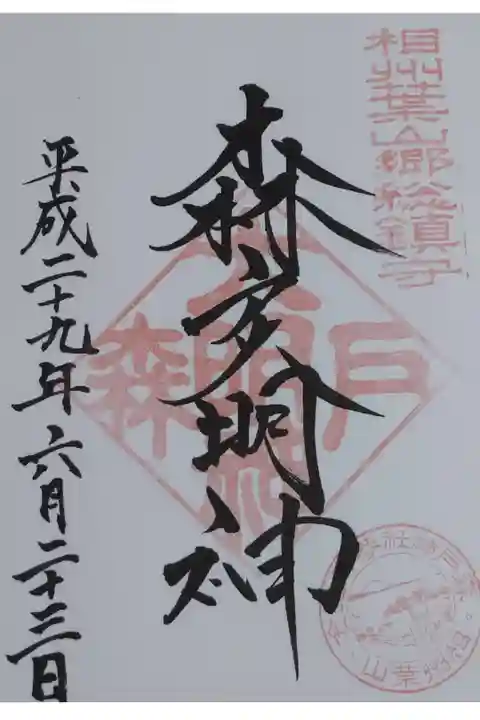 相州葉山郷総鎮守
森戸明神
平成二十九年六月二十三日